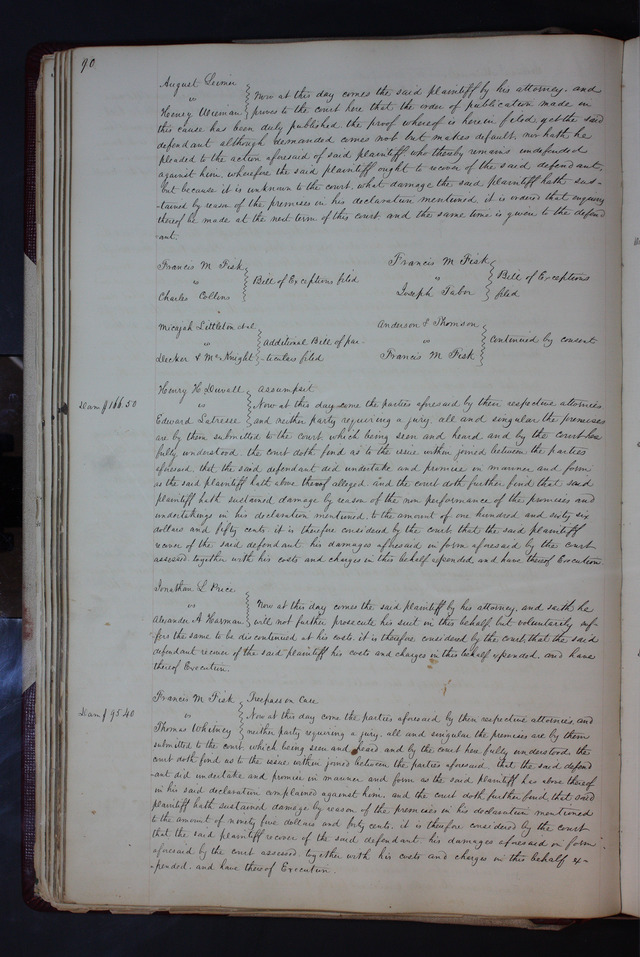 90
August
vs
Henry
Now at this day comes the said plaintiff by his attorney, and
proves to the court here that the order of publication made in
this cause has been duly published, the proof whereof is herein filed, yet the said
defendant although demanded comes not but makes default, nor hath he
pleaded to the action aforesaid of said plaintiff who thereby remains undefended
against him, wherefore the said plaintiff ought to recover of the said defendant.
but because it is unknown to the court, what damage the said plaintiff hath sus-
-tained by reason of the premises in his declaration mentioned, it is ordered that enquiry
thereof be made at the next term of this court and the same time is given to the defend
-ant.
Francis M Fisk
vs
Charles Collins
Bill of Exceptions filed
Francis M Fisk
vs
Joseph Tabor
Bill of Exceptions
filed
Micajah Littleton et al
vs
Decker & McKnight
Additional Bill of par-
-ticulars filed
Anderson & Thomson
vs
Francis M Fisk
Continued by consent
Dam $166.50
Henry H Duvall
vs
Edward
Assumpsit
Now at this day come the parties aforesaid by their respective attornies
and neither party requiring a jury, all and singular the premises
are by them submitted to the court, which being seen and heard and by the court here
fully understood, the court doth find as to the issue within joined between the parties
aforesaid, that the said defendant did undertake and promise in manner and form
as the said plaintiff hath above thereof alleged, and the court doth further find that said
plaintiff hath sustained damage by reason of the non performance of the promises and
undertakings in his declaration mentioned, to the amount of one hundred and sixty six
dollars and fifty cents, it is therefore considered by the court, that the said plaintiff
recover of the said defendant his damages aforesaid in form aforesaid by the court
assessed, together with his costs and charges in this behalf expended, and have thereof Execution
Jonathan L Price
vs
Alexander A Harman
Now at this day comes the said plaintiff by his attorney, and saith he
will not further prosecute his suit in this behalf but voluntarily suf-
fers the same to be discontinued at his costs, it is therefore, considered by the court, that the said
defendant recover of the said plaintiff his costs and charges in this behalf expended, and have
thereof Execution.
Dam $95.40
Francis M Fisk
vs
Thomas
Trespass on Case
Now at this day come the parties aforesaid by their respective attornies, and
neither party requiring a jury, all and singular the premises are by them
submitted to the court, which being seen and heard and by the court here fully understood, the
court doth find as to the issue within joined between the parties aforesaid, that the said defend
-ant did undertake and promise in manner and form as the said plaintiff has above thereof
in his said declaration complained against him, and the court doth further find, that said
plaintiff hath sustained damage by reason of the premises in his declaration mentioned
to the amount of ninety five dollars and forty cents, it is therefore considered by the court
that the said plaintiff recover of the said defendant, his damages aforesaid in form
aforesaid by the court assessed, together with his costs and charges in this behalf ex-
-pended, and have thereof Execution.